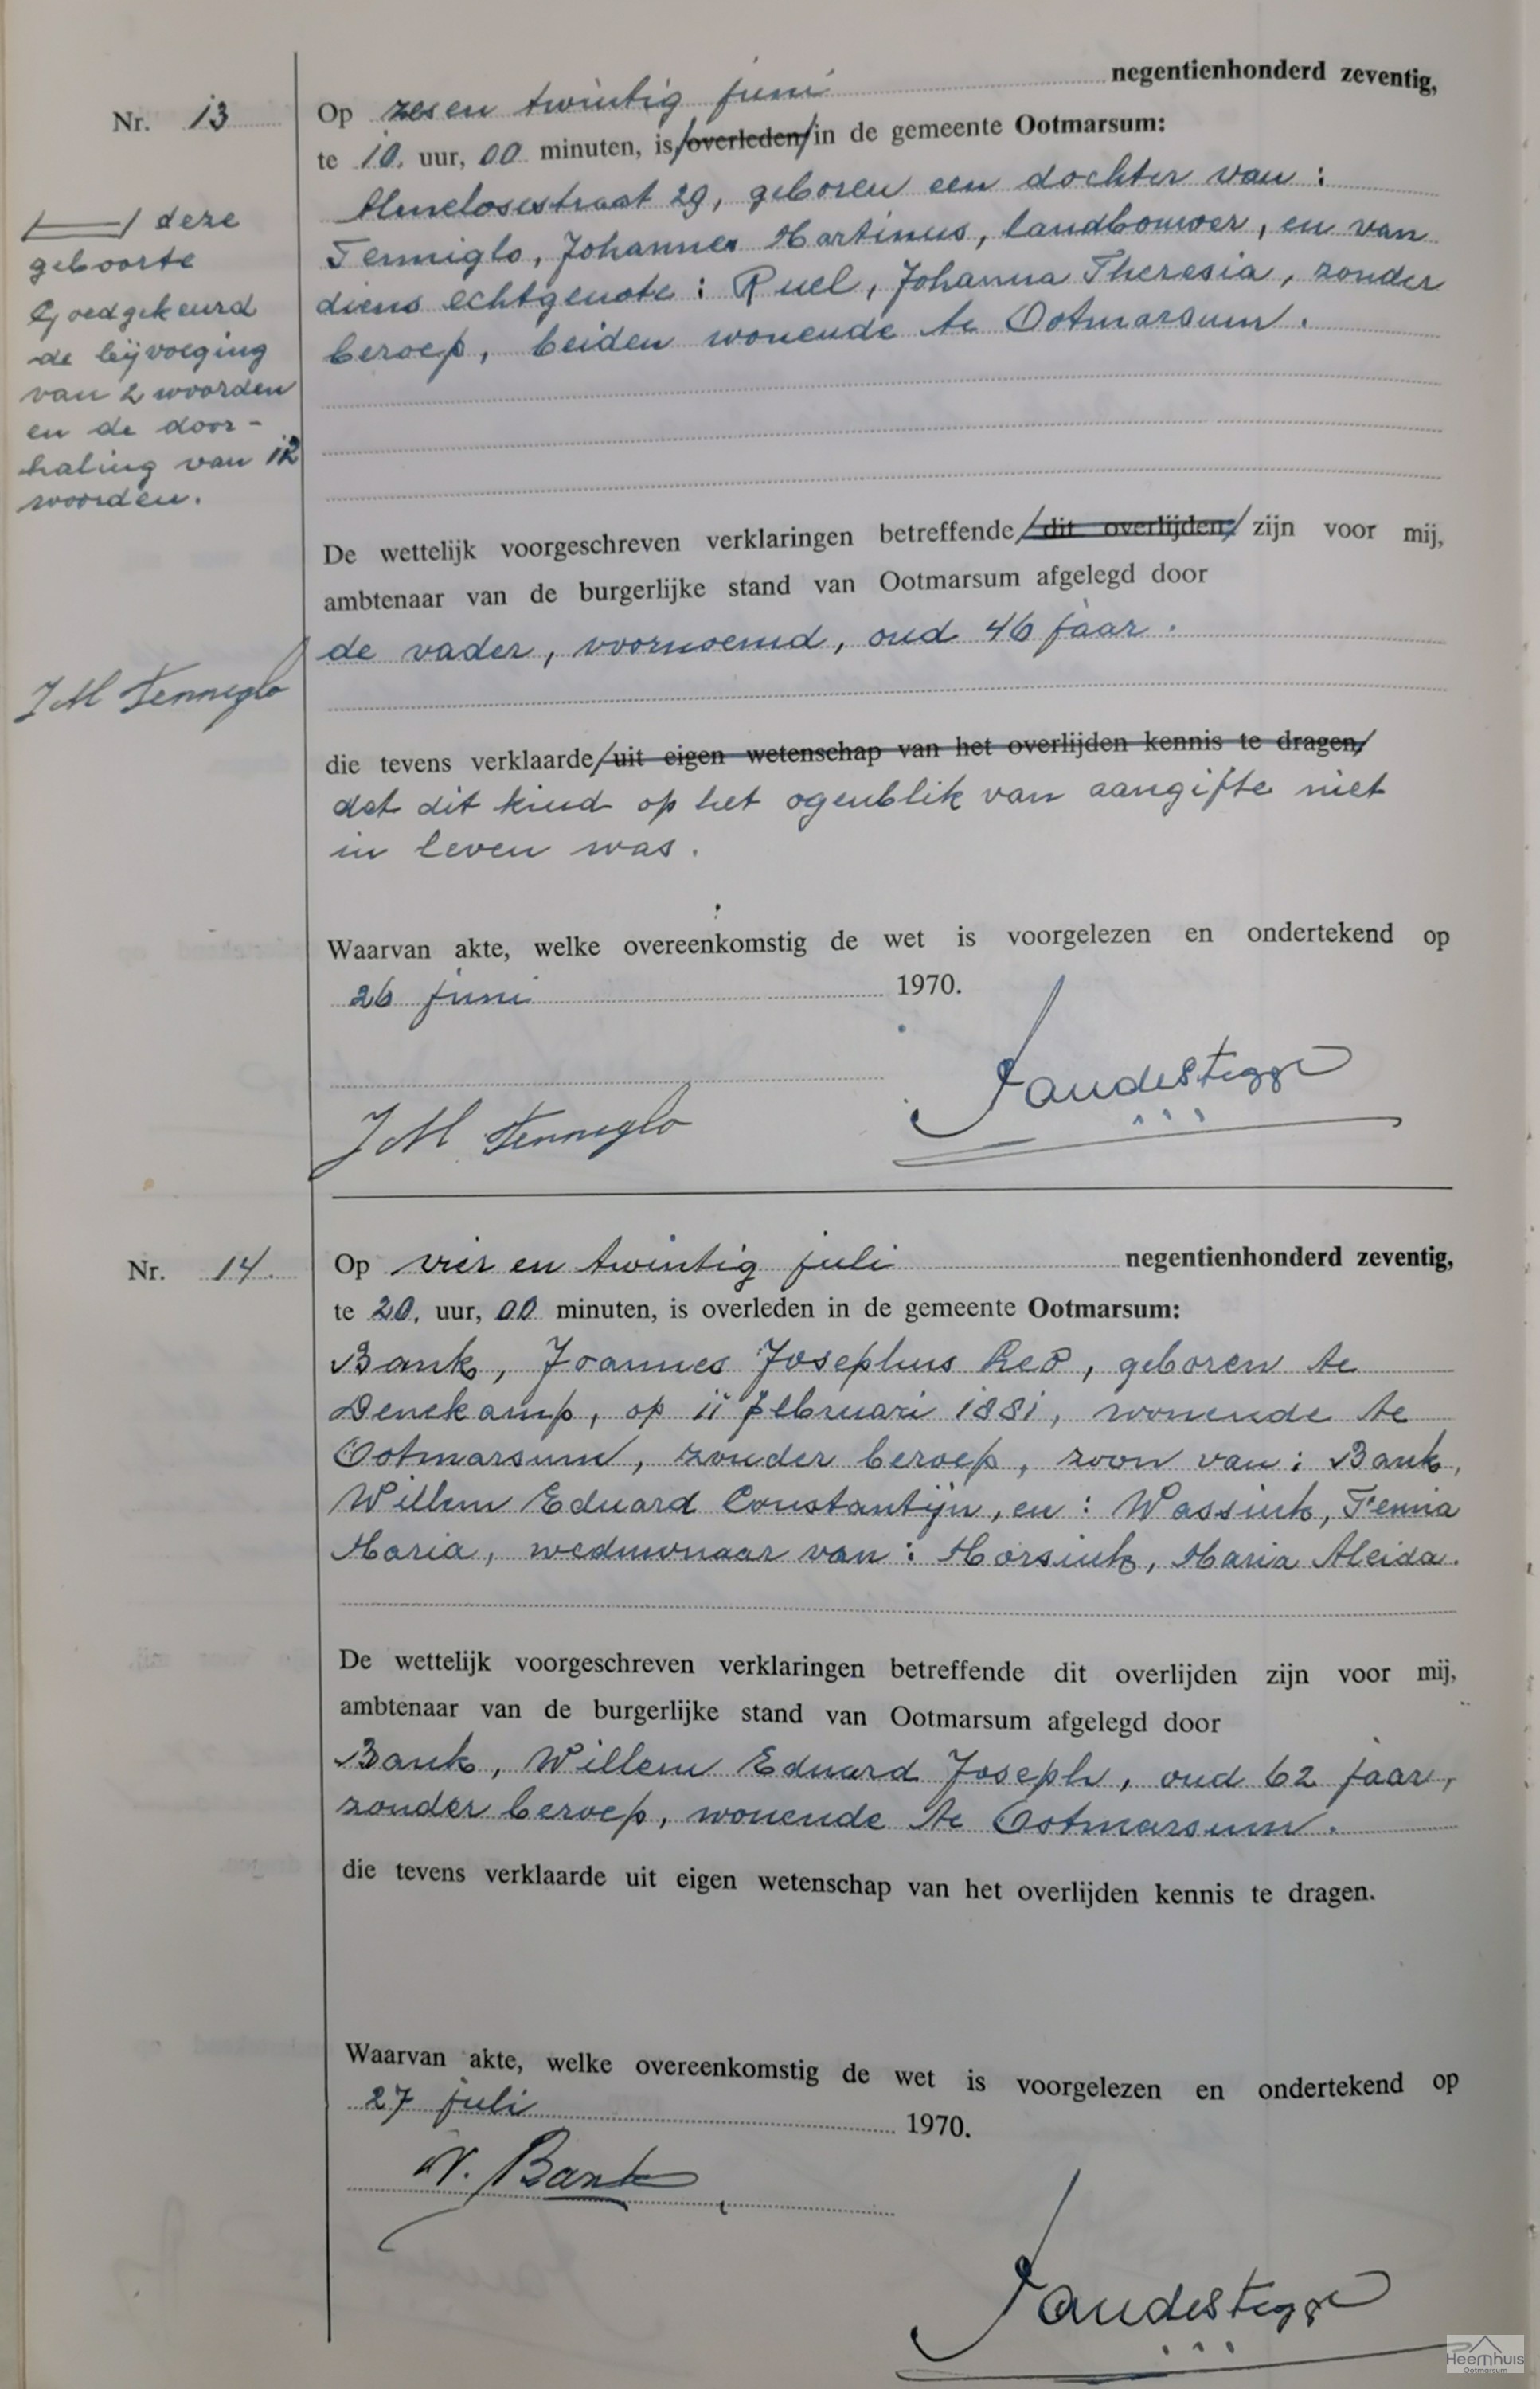 Nr. 13
Op zes en twintig juni negentienhonderd zeventig,
te 10. uur, 00 minuten, is /overleden/ in de gemeente Ootmarsum:
Almelosestraat 29, geboren een dochter van :
Tenniglo, Johannes Martinus, landbouwer, en van
diens echtgenote : Ruel, Johanna Theresia, zonder
beroep, beiden wonende te Ootmarsum.
/ / deze
geboorte
Goedgekeurd
de bijvoeging
van 2 woorden
en de door-
haling van 12
woorden.
JM Tenniglo
De wettelijk voorgeschreven verklaringen betreffende /dit overlijden/ zijn voor mij,
ambtenaar van de burgerlijke stand van Ootmarsum afgelegd door
de vader, voornoemd, oud 46 jaar.
die tevens verklaarde /uit eigen wetenschap van het overlijden kennis te dragen/
dat dit kind op het ogenblik van aangifte niet
in leven was.
Waarvan akte, welke overeenkomstig de wet is voorgelezen en ondertekend op
26 juni 1970.
JM Tenniglo
Nr. 14.
Op vier en twintig juli negentienhonderd zeventig,
te 20. uur, 00 minuten, is overleden in de gemeente Ootmarsum:
Bank, Joannes Josephus Leo, geboren te
Denekamp, op 11 februari 1881, wonende te
Ootmarsum, zonder beroep, zoon van : Bank,
Willem Eduard Constantijn, en : Wassink, Fenna
Maria, weduwnaar van : Morsink, Maria Aleida.
De wettelijk voorgeschreven verklaringen betreffende dit overlijden zijn voor mij,
ambtenaar van de burgerlijke stand van Ootmarsum afgelegd door
Bank, Willem Eduard Joseph, oud 62 jaar,
zonder beroep, wonende te Ootmarsum.
die tevens verklaarde uit eigen wetenschap van het overlijden kennis te dragen.
Waarvan akte, welke overeenkomstig de wet is voorgelezen en ondertekend op
27 juli 1970.
W. Bank
Heemhuis
Ootmarsum